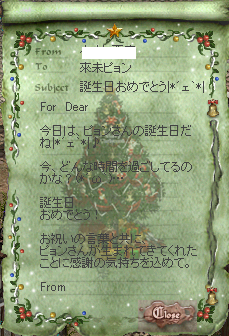 From
To 來未ピョン
Subject 誕生日おめでとう|*´ェ`*|
For Dear
今日は、ピョンさんの誕生日だ
ね|*´ェ`*|♪
今、どんな時間を過ごしてるの
かな？(*´ω`)…
誕生日
おめでとう！
お祝いの言葉と共に、
ピョンさんが生まれてきてくれた
ことに感謝の気持ちを込めて。
From
Close